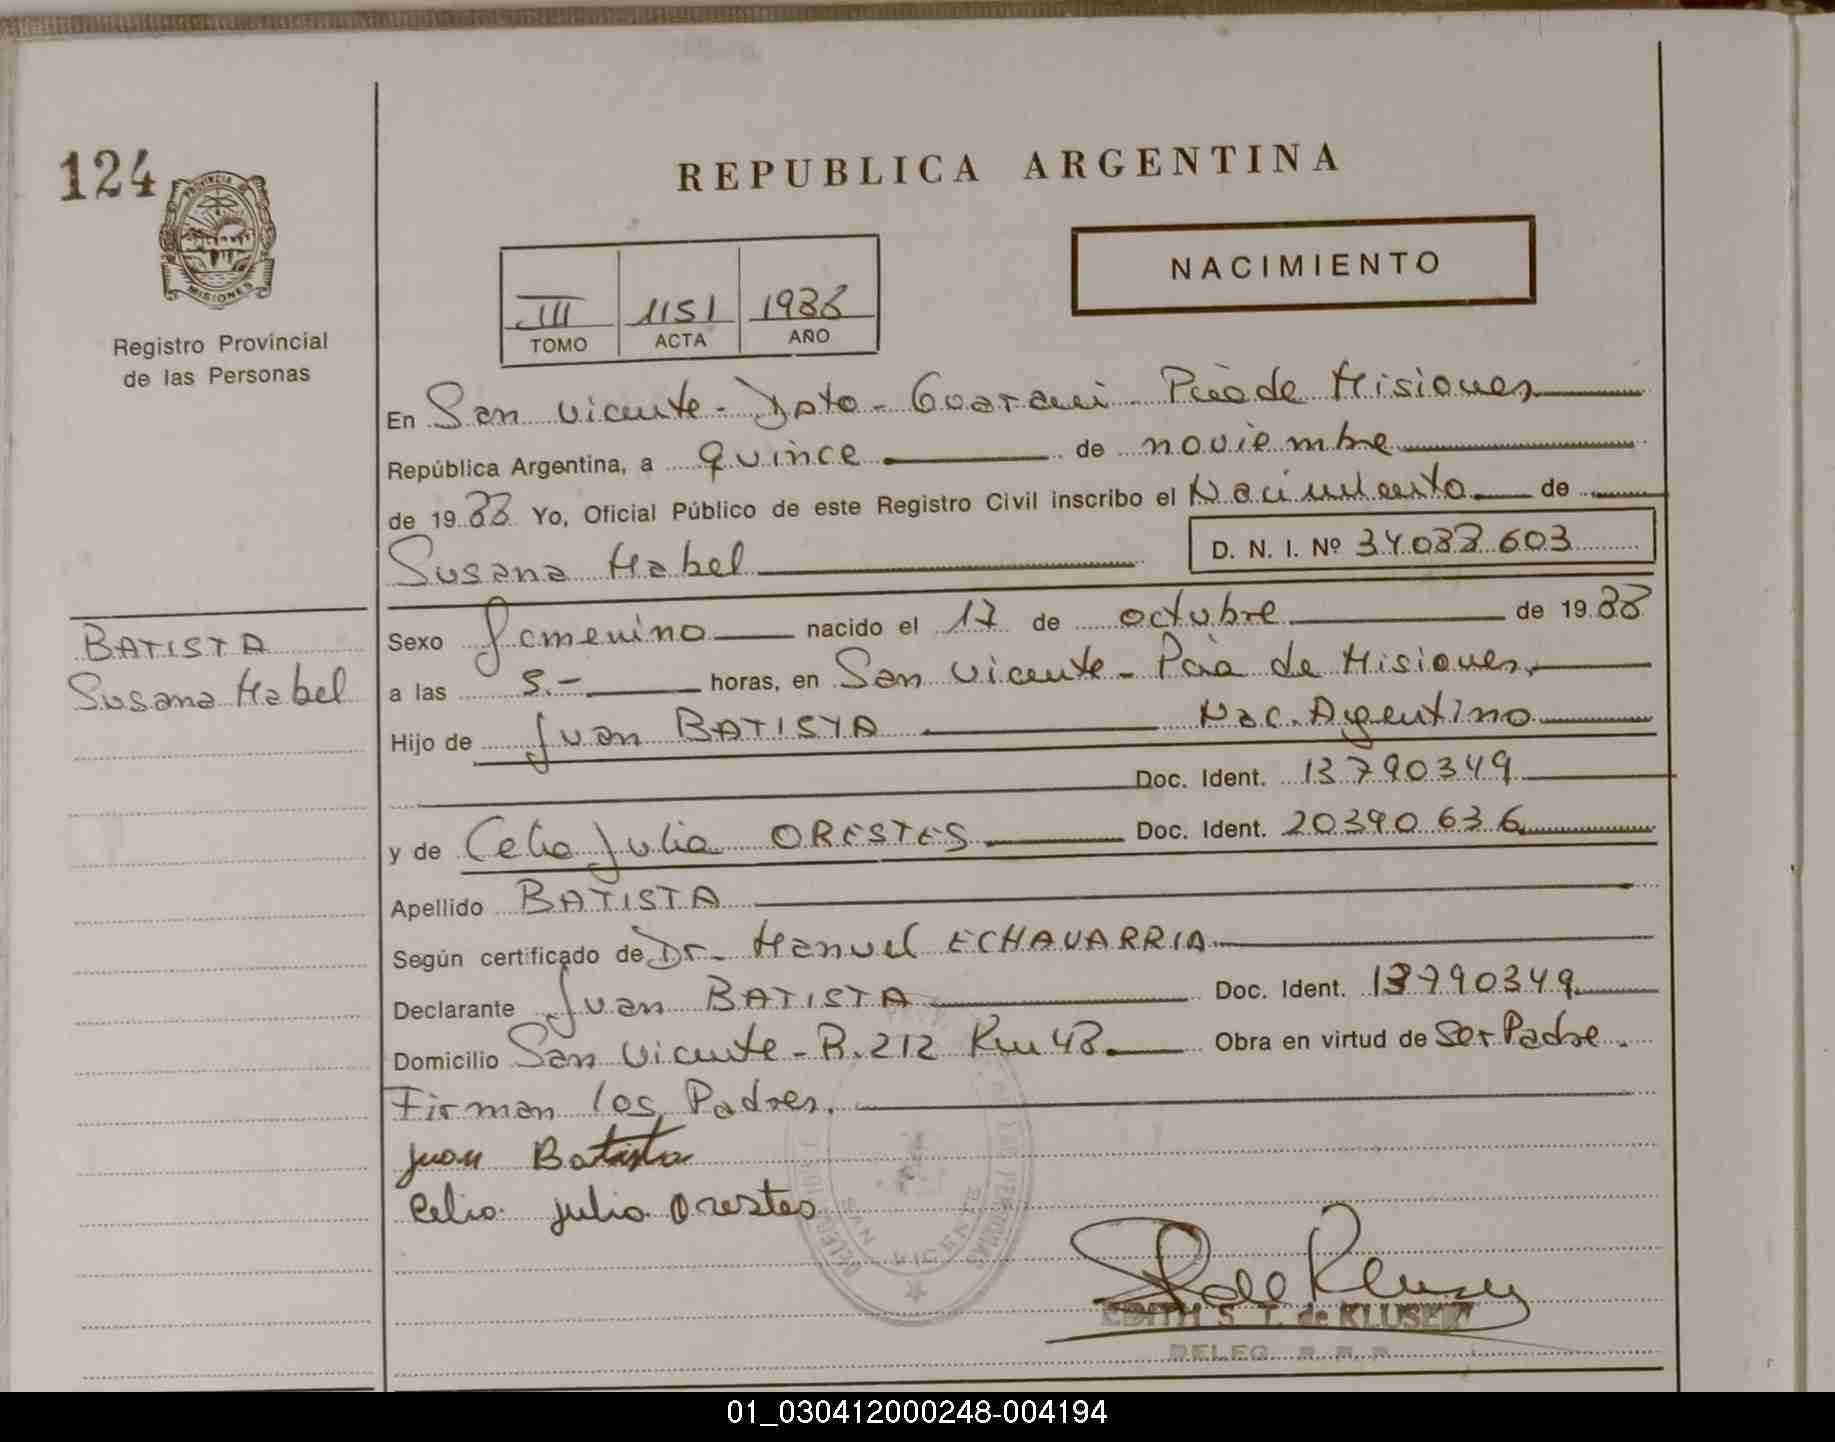 124
PROVINCIA DE
MISIONES
Registro Provincial
de las Personas
REPUBLICA ARGENTINA
NACIMIENTO
III 1151 1988
TOMO ACTA AÑO
En San Vicente - Dpto - Guarani - Pcia de Misiones
República Argentina, a quince de noviembre
de 1988 Yo, Oficial Público de este Registro Civil inscribo el Nacimiento de
Susana Mabel D. N. I. Nº 34.088.603
BATISTA
Susana Mabel
Sexo femenino nacido el 17 de octubre de 1988
a las 5.- horas, en San Vicente - Pcia de Misiones.
Hijo de Juan BATISTA Nac. Argentino
Doc. Ident. 13.790349
y de Celia Julia ORESTES Doc. Ident. 20390636
Apellido BATISTA
Según certificado de Dr. Manuel ECHAVARRIA
Declarante Juan BATISTA Doc. Ident. 13790349
Domicilio San Vicente - R. 212 Km 48 Obra en virtud de Ser Padre.
Firman los Padres.
Juan Batista
Celia Julia Orestes
SAN VICENTE
EDITH S. T. de KLUSER
DELEG. R. P. P.
01_030412000248-004194